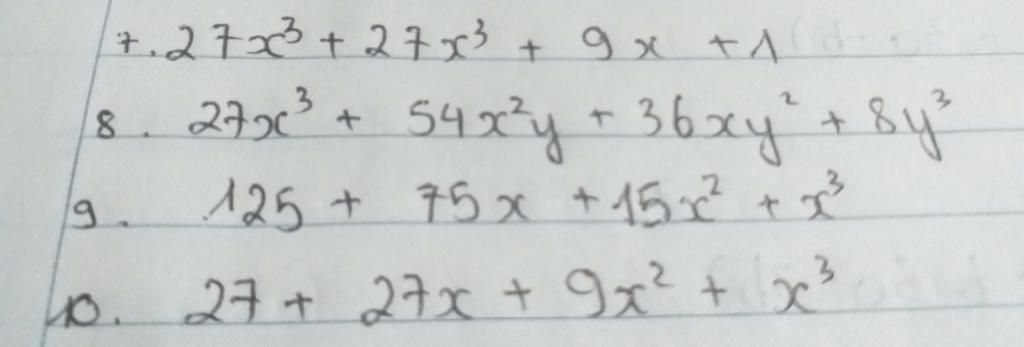 7. 27x³ + 27x³ + 9x + 1
8. 27x³ + 54x²y + 36xy² + 8y³
9. 125 + 75x + 15x² + x³
10. 27 + 27x + 9x² + x³